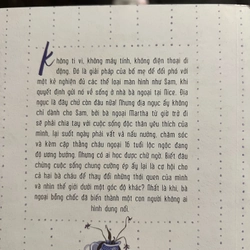 Không ti vi, không máy tính, không điện thoại di
động. Đó là giải pháp của bố mẹ để đối phó với
một kẻ nghiện đủ các thể loại màn hình như Sam, khi
quyết định gửi nó về sống ở nhà bà ngoại tại Rice. Địa
ngục là đây chứ còn đâu nữa! Nhưng địa ngục ấy không
chỉ dành cho Sam, bởi bà ngoại Martha từ giờ trở đi
sẽ phải chia tay với cuộc sống độc thân yêu thích của
mình, lại suốt ngày phải vất vả nấu nướng, chăm sóc
và kèm cặp thằng cháu ngoại 16 tuổi lộc ngộc đang
độ ương bướng. Nhưng có ai học được chữ ngờ. Biết đâu
chừng cuộc sống chung cưỡng ép ấy lại là cơ hội cho
cả hai bà cháu để thay đổi những thói quen của mình
và nhìn thế giới dưới một góc độ khác? Nhất là khi, bà
ngoại bỗng chốc đã biến thành một con người không ai
hình dung nổi.